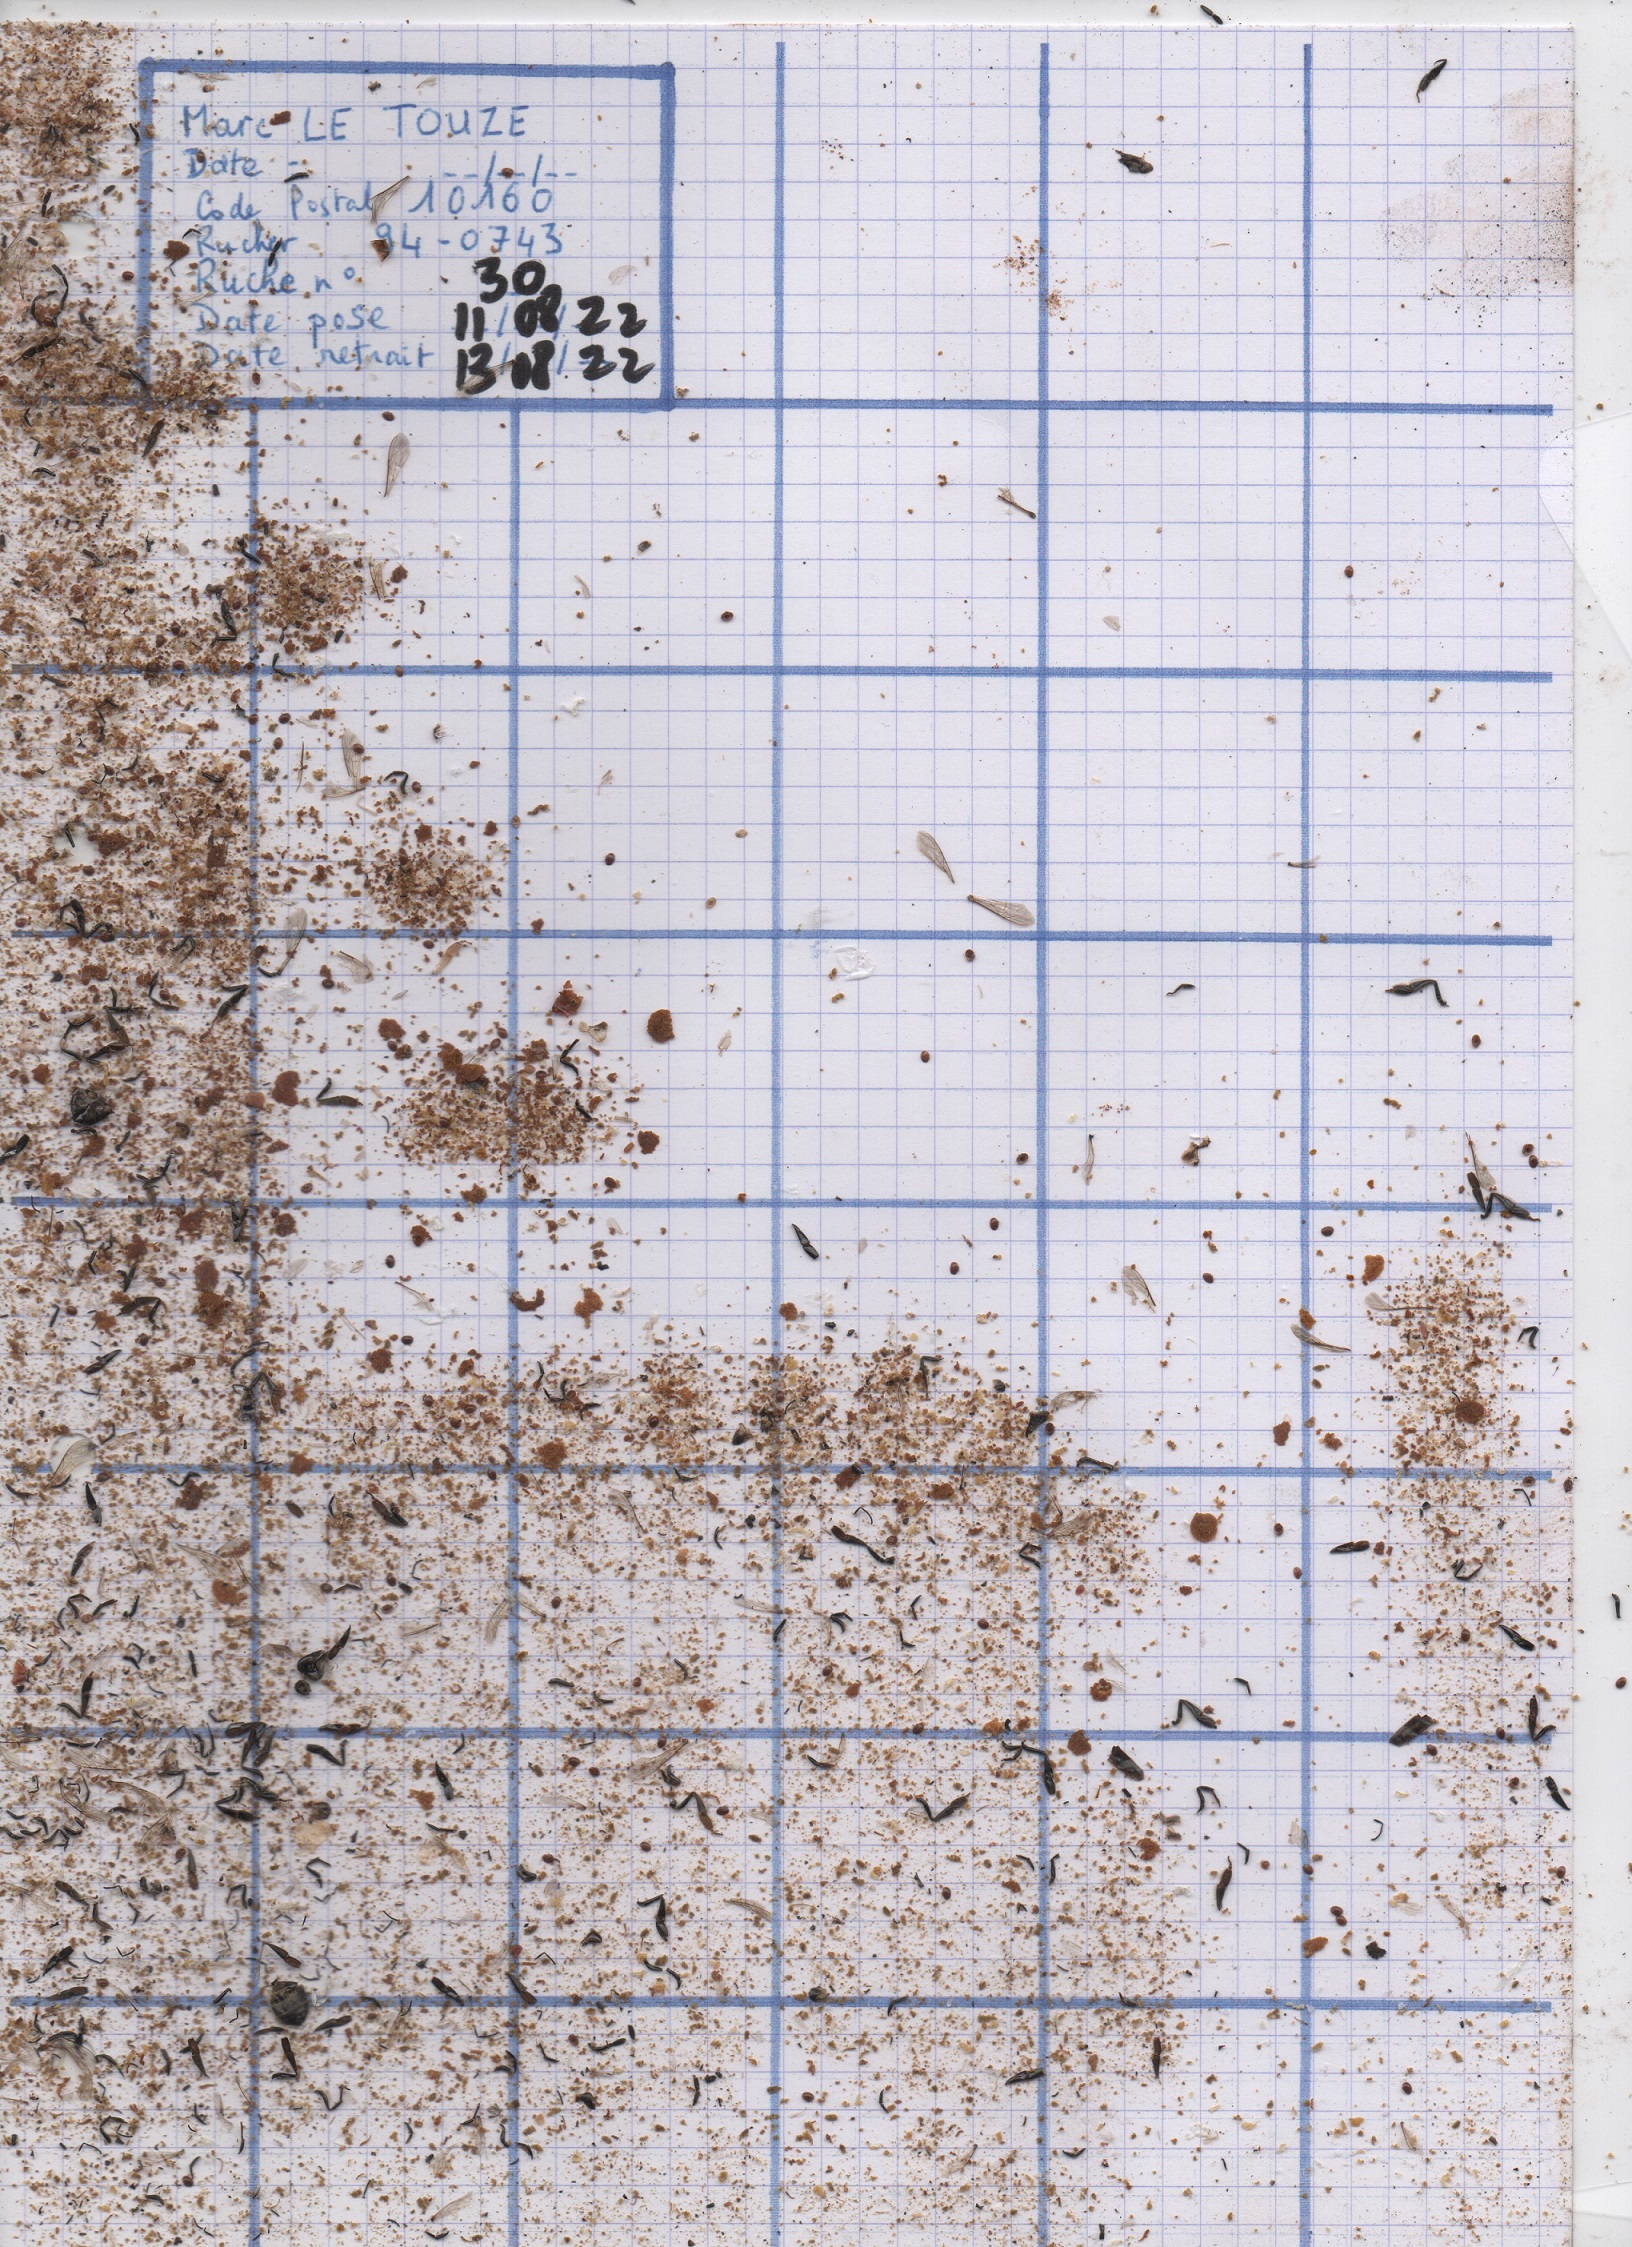 Marc LE TOUZE
Date - --/--/--
Code Postal 10160
Rucher 94-0743
Ruche n° 30
Date pose 11/08/22
Date retrait 13/08/22